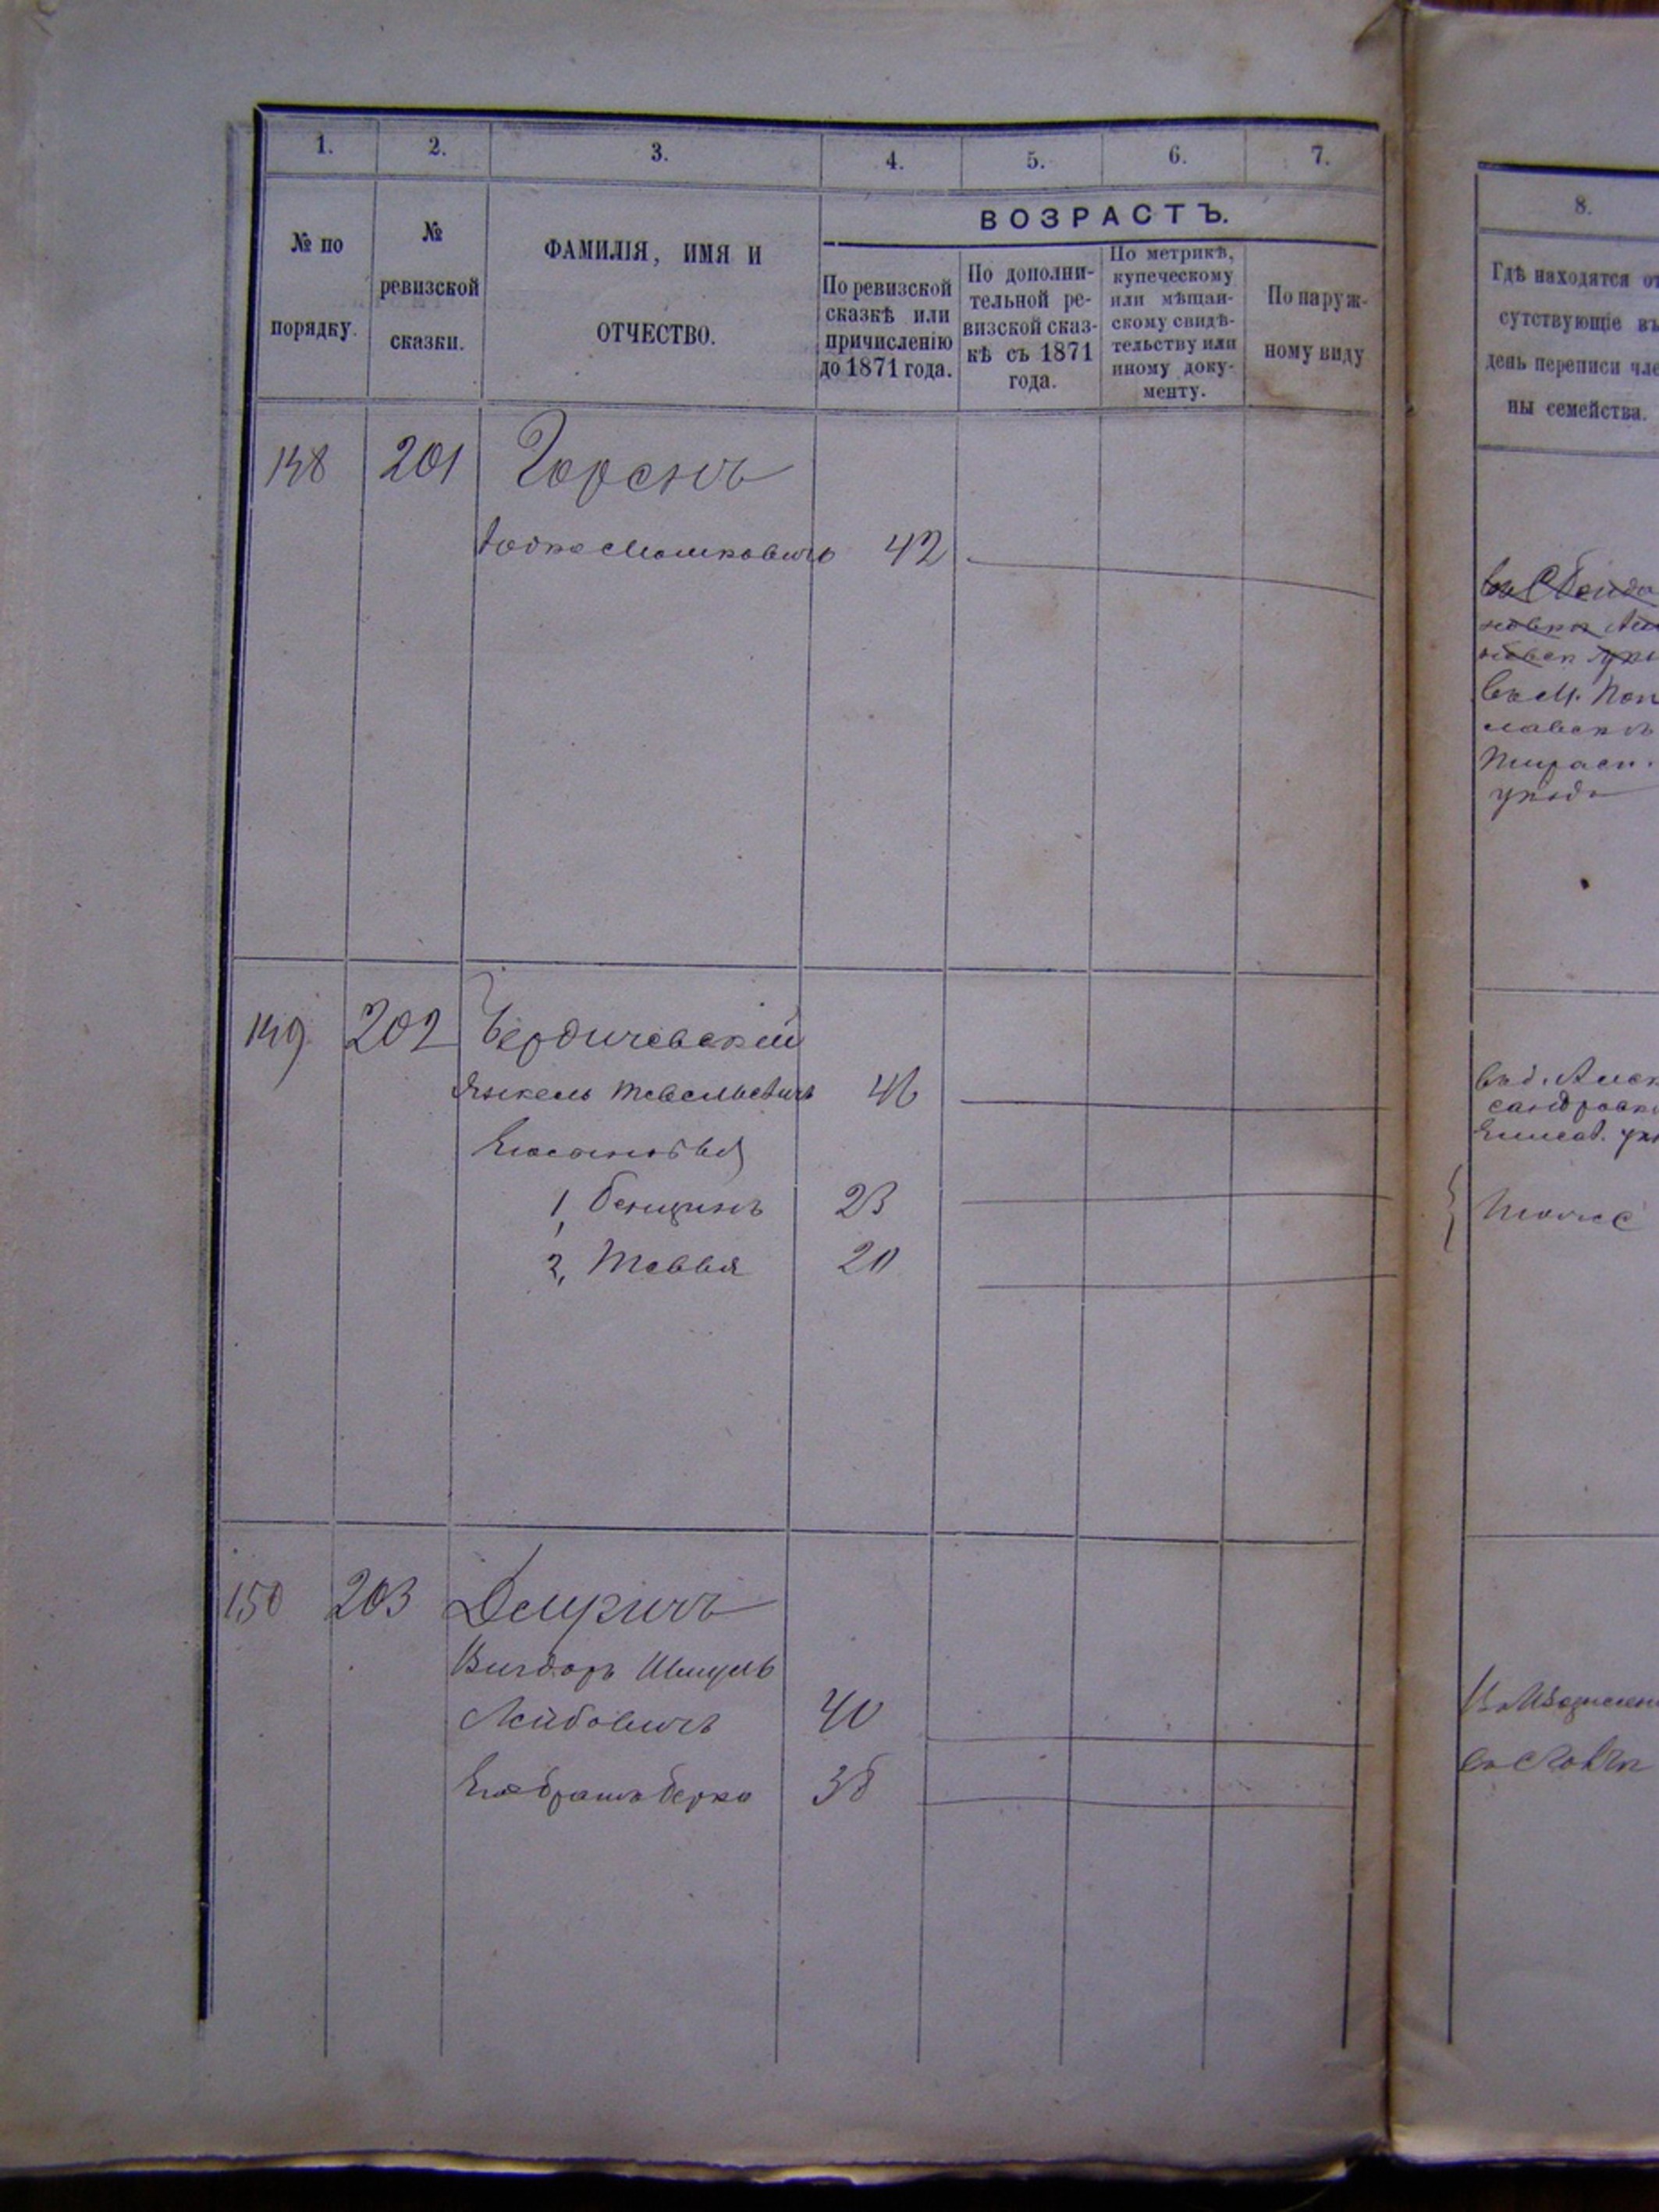 1. 2. 3. 4. 5. 6. 7.
№ по порядку.
№ ревизской сказки.
ФАМИЛІЯ, ИМЯ И
ОТЧЕСТВО.
ВОЗРАСТЪ.
По ревизской
сказкѣ или
причисленію
до 1871 года.
По дополни-
тельной ре-
визской сказ-
кѣ съ 1871
года.
По метрикѣ,
купеческому
или мѣщан-
скому свидѣ-
тельству или
иному доку-
менту.
По наруж-
ному виду
148 201
Мошковичъ 42
149 202 Бердичевскій
Янкель Тевельевичъ 46
Его сыновья
1, Бенционъ 23
2, Тевья 20
150 203
Вигдоръ Шмуль
Лейбовичъ 40
Его братъ Берко
8.
Гдѣ находятся от
сутствующіе въ
день переписи чле
ны семейства.
въ М.
славскѣ
Тирасп.
уѣзда
Алек
сандровк
Елисав.
Тоже